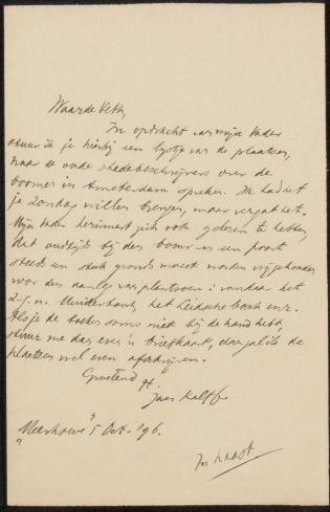 Waarde Veth,
In opdracht van mijn Vader
stuur ik je hierbij een lijstje van de plaatsen,
waar de oude stedebeschrijvers over de
boomen in Amsterdam spreken. Ik had het
je Zondag willen brengen, maar vergat het.
Mijn Vader herinnert zich ook gelezen te hebben,
dat oudtijds bij den bouw van een poort
steeds een stuk gronds moest worden vrijgehouden
voor den aanleg van plantsoen: vandaar het
z.g.n. Muiderbosch, het Leidsche bosch enz.
Als je de boeken soms niet bij de hand hebt,
stuur me dan even 'n briefkaart, dan zal ik de
plaatsen wel even afschrijven.
Groetend
Jan Kalff
5 Oct. '96.
In haast.